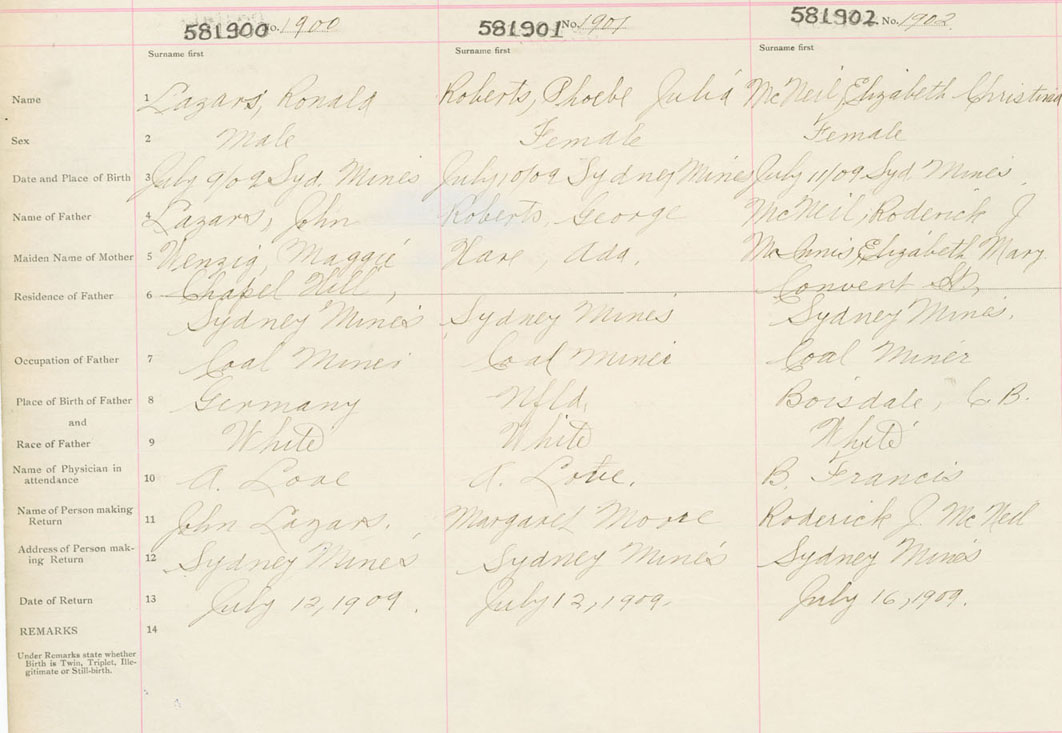 581900 No. 1900 581901 No. 1901 581902 No. 1902
Surname first Surname first Surname first
Name 1 Lazars, Ronald Roberts, Phoebe Julia McNeil, Elizabeth Christina
Sex 2 Male Female Female
Date and Place of Birth 3 July 9/09 Syd. Mines July 10/09 Sydney Mines July 11/09 Syd. Mines
Name of Father 4 Lazars, John Roberts, George McNeil, Roderick J
Maiden Name of Mother 5 Wenzig, Maggie Hare, Ada, McInnis, Elizabeth Mary
Chapel Hill, Convent St,
Residence of Father 6 Sydney Mines Sydney Mines Sydney Mines.
Occupation of Father 7 Coal Miner Coal Miner Coal Miner
Place of Birth of Father 8 Germany Nfld, Boisdale, C B.
and
Race of Father 9 White White White
Name of Physician in
attendance 10 A. Love B. Francis
Name of Person making
Return 11 John Lazars. Margaret Moore Roderick J. McNeil
Address of Person mak-
ing Return 12 Sydney Mines Sydney Mines Sydney Mines
Date of Return 13 July 12, 1909. July 12, 1909. July 16, 1909.
REMARKS 14
Under Remarks state whether
Birth is Twin, Triplet, Ille-
gitimate or Still-birth.